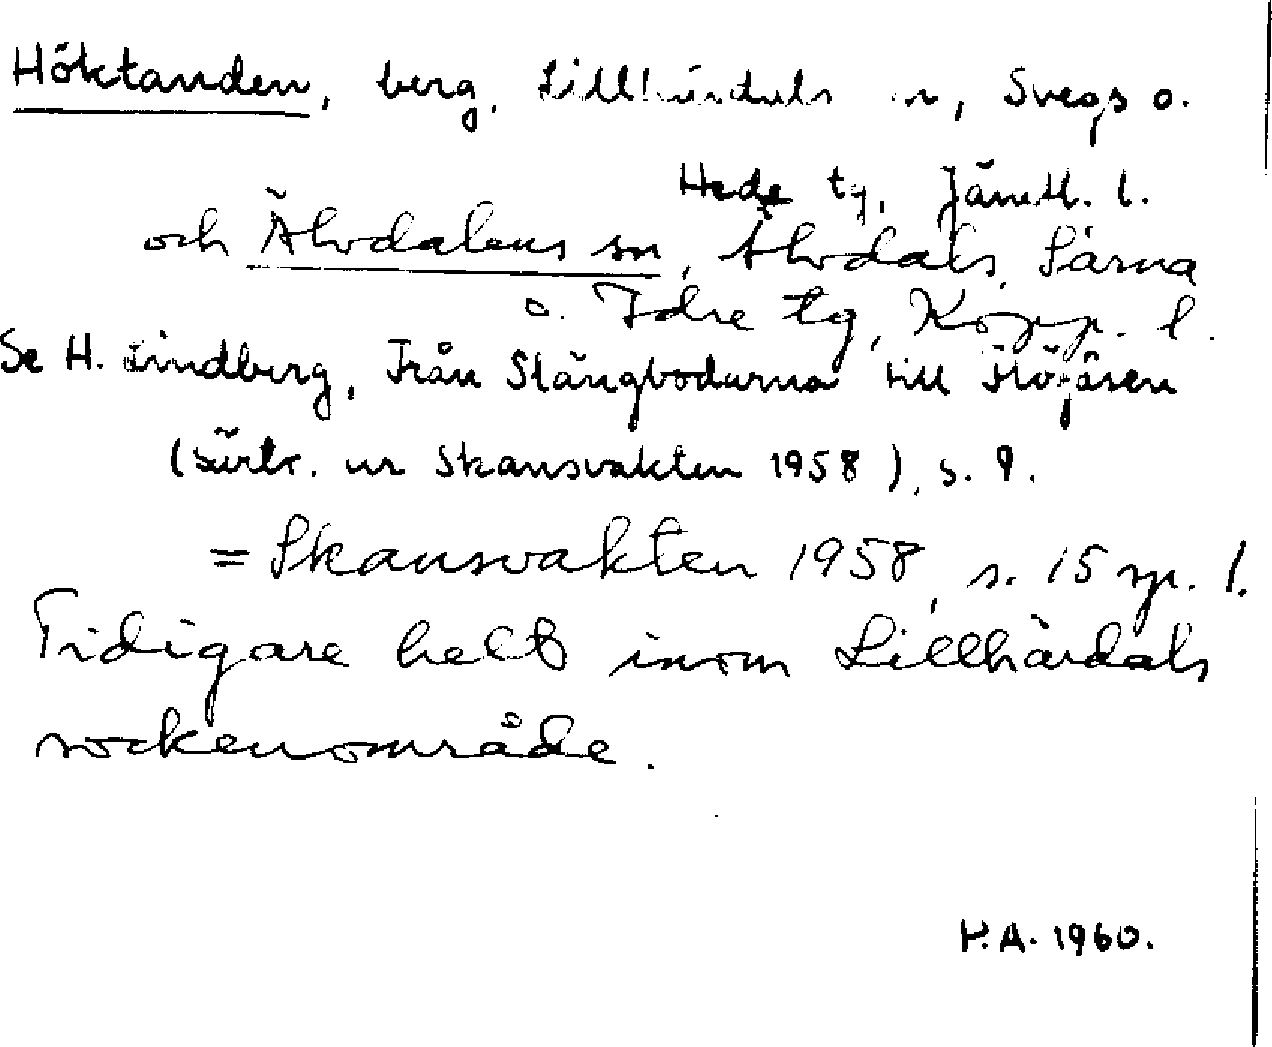 Höktanden, berg, Lillhärdals sn, Svegs o.
Hede tg, Jämtl. l.
och Älvdalens sn, Älvdals, Särna
o. Idre tg, Kopp. l.
Se H. Lindberg, Från Stängbodarna till Högåsen
(särtr. ur Skansvakten 1958), s. 9.
= Skansvakten 1958, s. 15 sp. 1.
Tidigare helt inom Lillhärdals
sockenområde.
P.A. 1960.